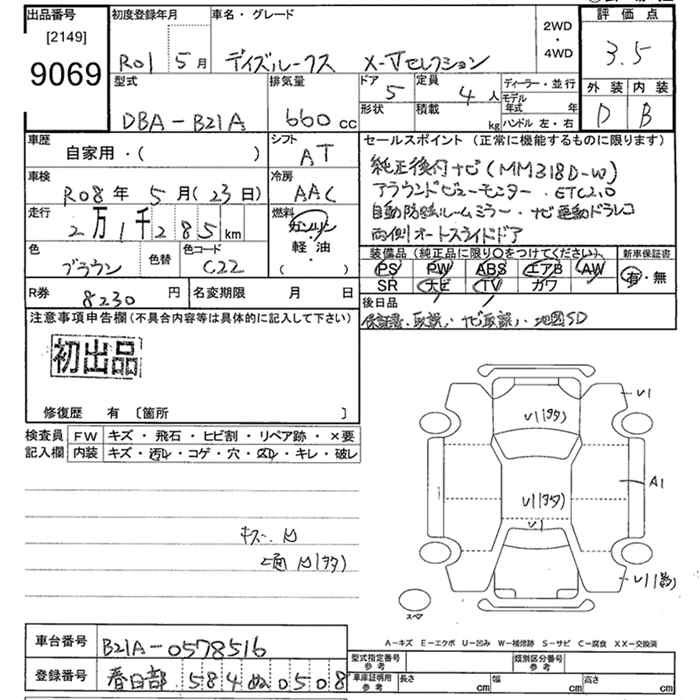 出品番号 初度登録年月 車名・グレード 2WD・4WD 評価点
[2149]
9069 R01 5月 デイズルークス X-Vセレクション 3.5
型式 排気量 ドア 5 定員 4人 ディーラー・並行 外装 内装
DBA-B21A 660cc 形状 積載 kg モデル年式 年 D B
ハンドル 左・右
車歴 シフト セールスポイント (正常に機能するものに限ります)
自家用・( ) AT 純正後付ナビ(MM318D-W)
車検 冷房 アラウンドビューモニター.ETC2.0
R08年 5月(23日) AAC 自動防眩ルームミラー・ナビ連動ドラレコ
走行 燃料 両側オートスライドドア
2万1千285km ガソリン
軽・油
・( )
色 色替 色コード 装備品(純正品に限り○をつけてください) 新車保証書
ブラウン C22 PS PW ABS エアB AW 有・無
SR ナビ TV ガワ
R券 8230円 名変期限 月 日 後日品
注意事項申告欄(不具合内容等は具体的に記入して下さい) 保証書、取説、ナビ取説、地図SD
初出品
修復歴 有〔箇所 〕
検査員 FW キズ・飛石・ヒビ割・リペア跡・×要
記入欄 内装 キズ・汚レ・コゲ・穴・スレ・キレ・破レ
U1
U1(多)
A1
U1(多)
U1
キズ、U
上面U(多)
U1(多)
スペア
A-キズ E-エクボ U-凹み W-補修跡 S-サビ C-腐食 XX-交換済
車台番号 B21A-0578516
型式指定番号 参考 類別区分番号 参考
登録番号 春日部 584 ぬ 0508 車庫証明用 参考 長さ cm 幅 cm 高さ cm